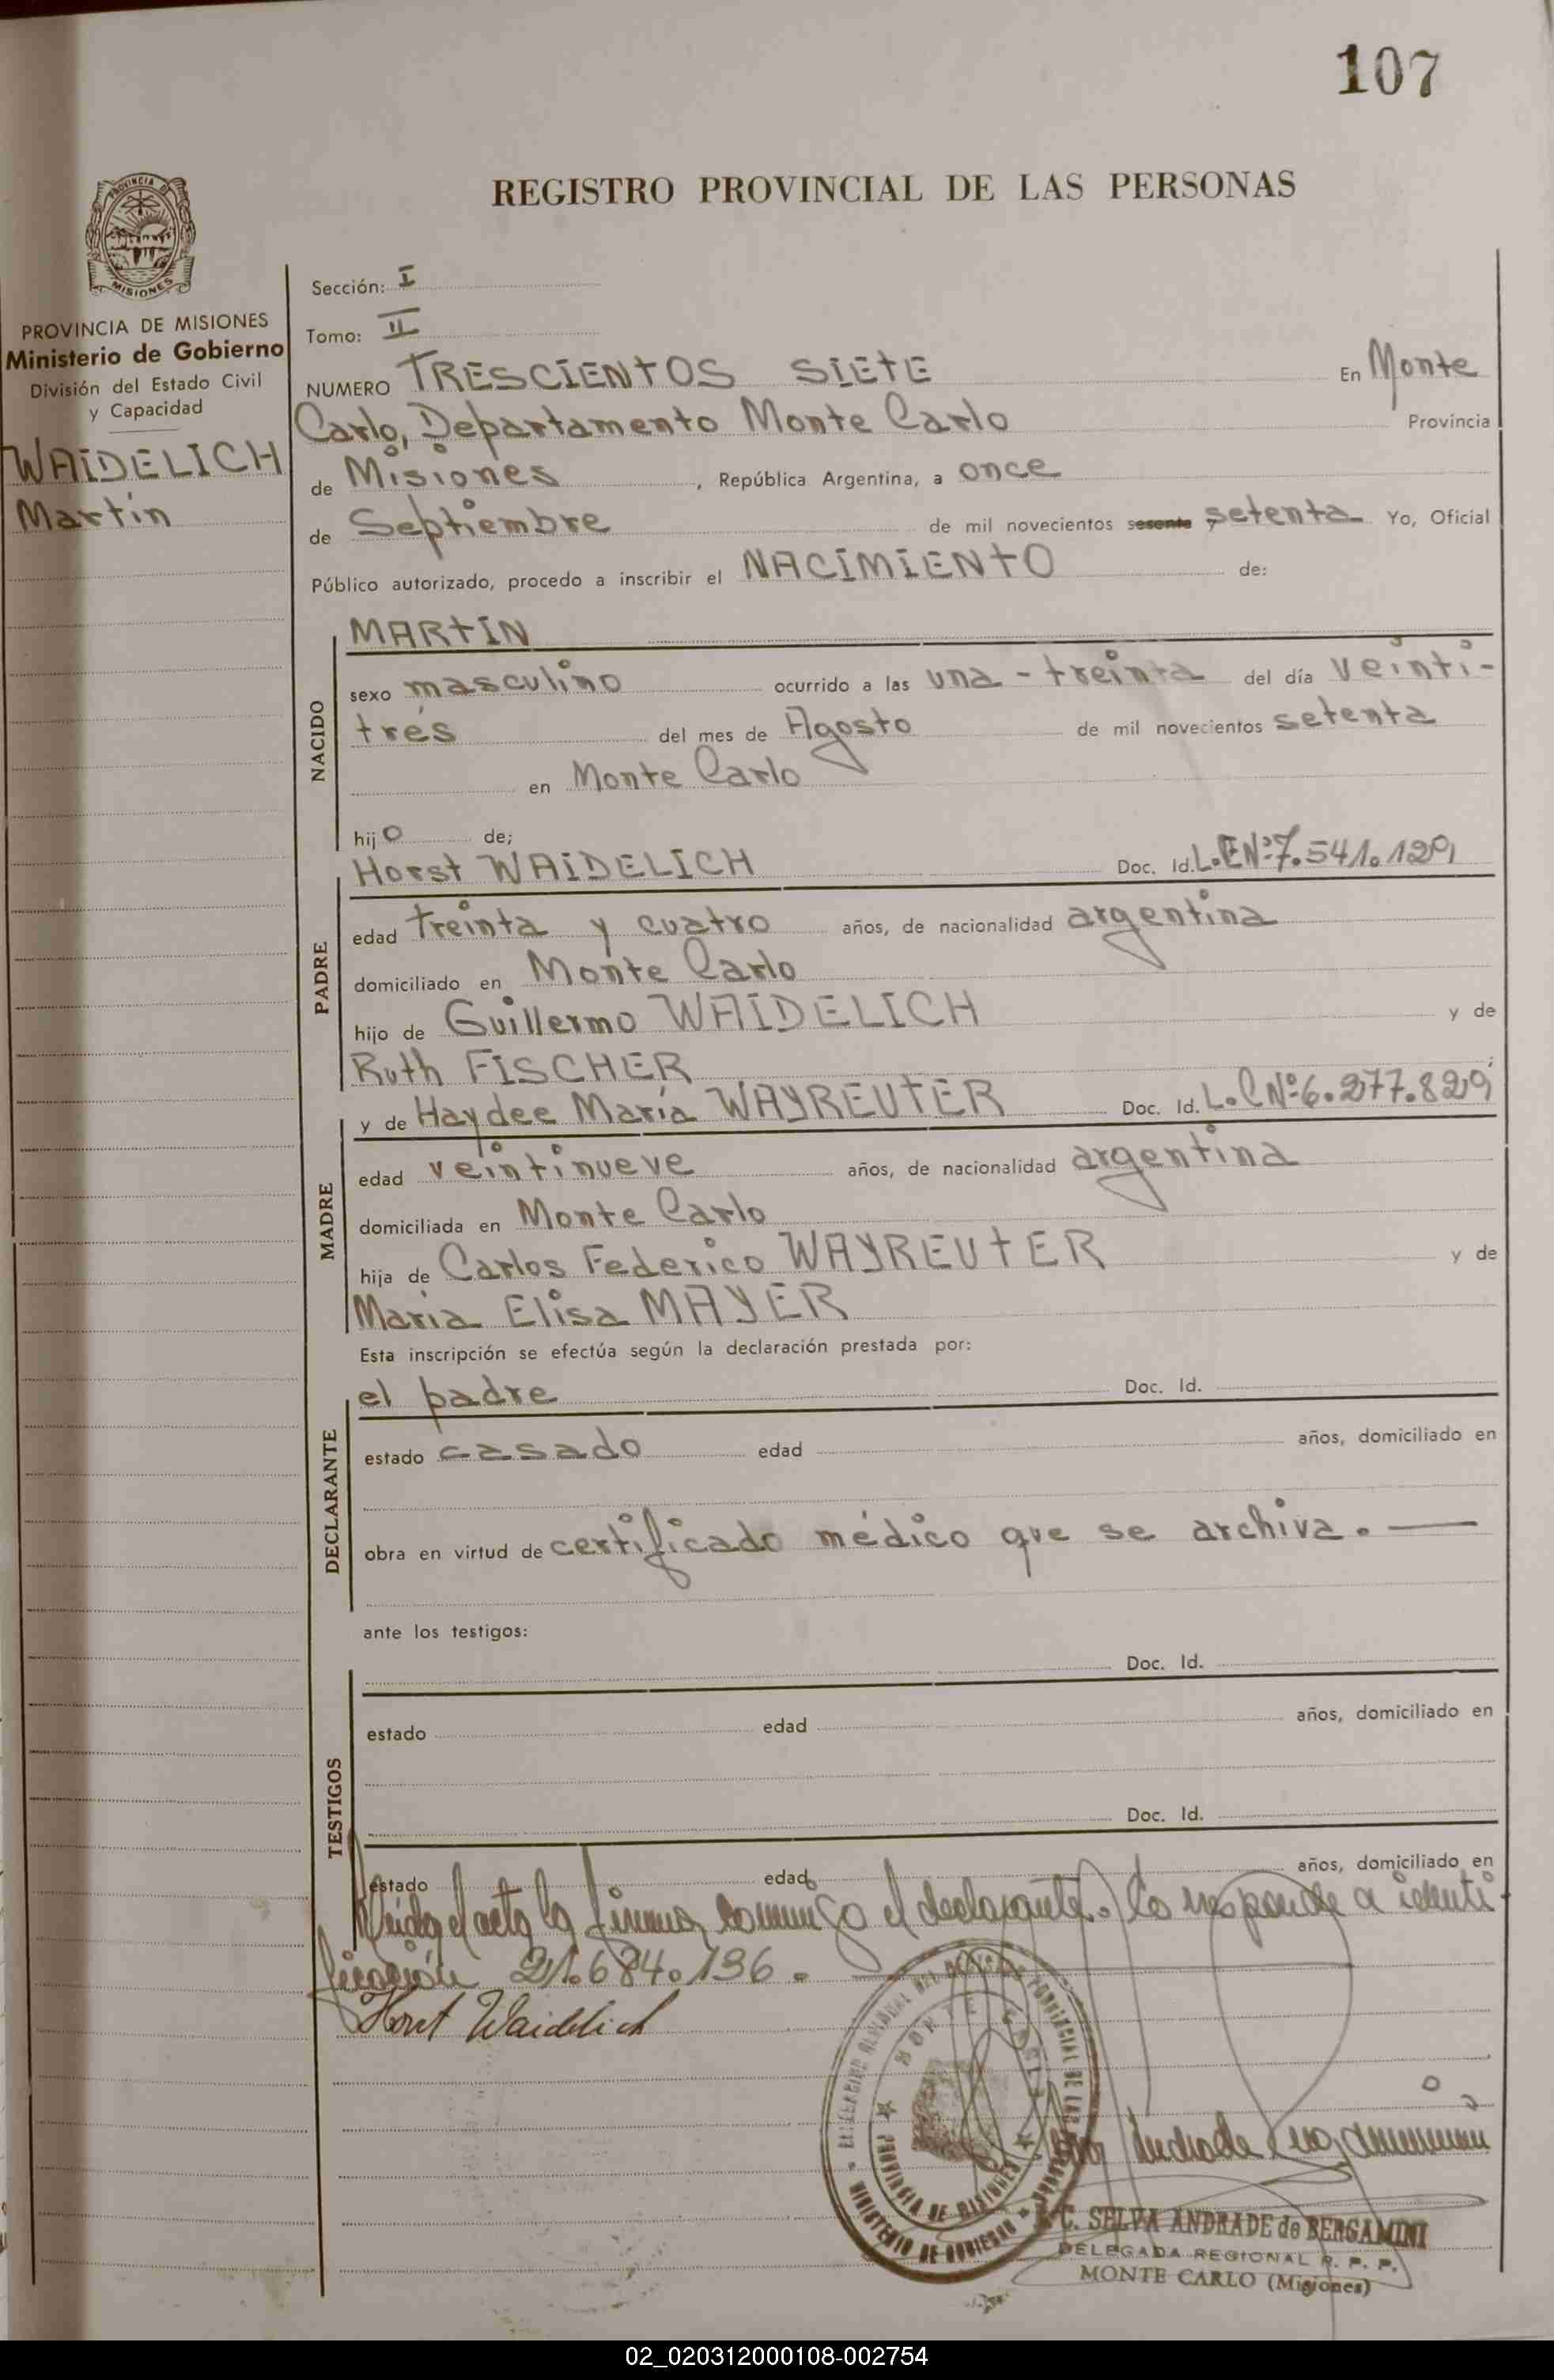 107
REGISTRO PROVINCIAL DE LAS PERSONAS
PROVINCIA DE
MISIONES
PROVINCIA DE MISIONES
Ministerio de Gobierno
División del Estado Civil
y Capacidad
WAIDELICH
Martín
Sección: I
Tomo: II
NUMERO TRESCIENTOS SIETE En Monte
Carlo, Departamento Monte Carlo Provincia
de Misiones, República Argentina, a once
de Septiembre de mil novecientos sesenta y setenta Yo, Oficial
Público autorizado, procedo a inscribir el NACIMIENTO de:
NACIDO
MARTIN
sexo masculino ocurrido a las una - treinta del día veinti-
trés del mes de Agosto de mil novecientos setenta
en Monte Carlo
hijo de;
PADRE
Horst WAIDELICH Doc. Id. L.E Nº 7.541.129,
edad treinta y cuatro años, de nacionalidad argentina
domiciliado en Monte Carlo
hijo de Guillermo WAIDELICH y de
Ruth FISCHER
MADRE
y de Haydee María WAYREUTER Doc. Id. L.C Nº 6.277.829,
edad veintinueve años, de nacionalidad argentina
domiciliada en Monte Carlo
hija de Carlos Federico WAYREUTER y de
Maria Elisa MAYER
Esta inscripción se efectúa según la declaración prestada por:
DECLARANTE
el padre Doc. Id.
estado casado edad años, domiciliado en
obra en virtud de certificado médico que se archiva. —
ante los testigos:
TESTIGOS
Doc. Id.
estado edad años, domiciliado en
Doc. Id.
estado edad años, domiciliado en
Leida el acta la firma conmigo el declarante. Co responde a identi-
ficación 21.684.136.
Horst Waidelich
PROVINCIA DE MISIONES
MINISTERIO DE GOBIERNO
C. SELVA ANDRADE de BERGAMINI
DELEGADA REGIONAL R. P. P.
MONTE CARLO (Misiones)
02_020312000108-002754